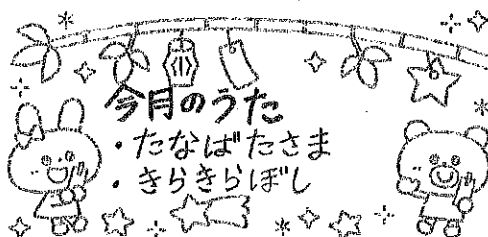 今月のうた
・たなばたさま
・きらきらぼし